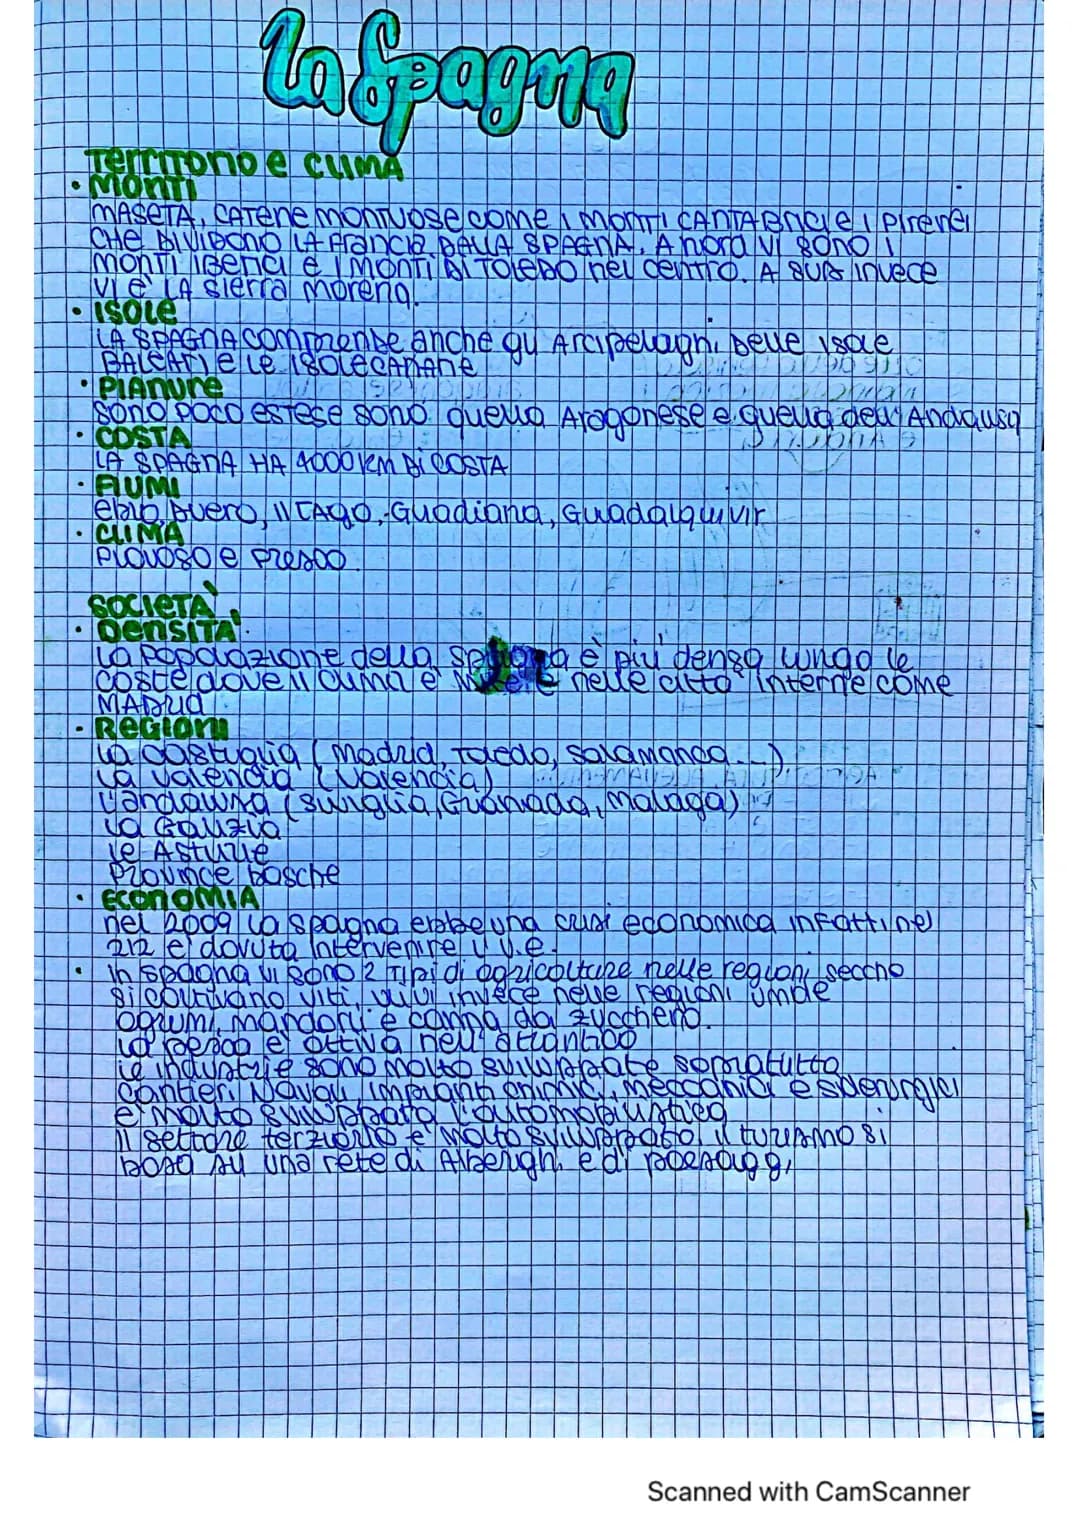 La Spagna
Territorio e CLIMA
• MONTI
MASETA, CATENE MONTUOSE COME I MONTI CANTABRICI E I PIRENEI
CHE DIVIDONO LA FRANCIA DALLA SPAGNA. A nord VI SONO I
MONTI IBERICI E I MONTI DI TOLEDO nel centro. A SUD INVECE
VI E' LA Sierra Morena.
• ISOLE
LA SPAGNA comprende anche gli Arcipelaghi Delle Isole
BALEARI e le ISOLE CANARIE
• PIANURE
SONO POCO ESTESE SONO quella Aragonese e quella dell'Andalusa
• COSTA
LA SPAGNA HA 4000 KM DI COSTA
• FIUMI
ebro, Duero, il TAgo, Guadiana, Guadalquivir
• CLIMA
PIOVOSO e FRESCO.
SOCIETA'
• DENSITA'.
La Popolazione della è più densa lungo le
coste dove il clima è nelle città interne come
MADRID
• REGIONI
La castiglia (Madrid, Toledo, Salamanca...)
La Valencia (Valencia)
L'andalusa (Siviglia, Granada, Malaga)
La Galizia
le Asturie
Province basche
• ECONOMIA
nel 2009 la spagna ebbe una crisi economica infatti nel
212 è dovuta intervenire l'U.E.
• In Spagna vi sono 2 Tipi di agricolture nelle regioni secche
si coltivano viti, ulivi invece nelle regioni umide
agrumi, mandorli e canna da zucchero.
La pesca è attiva nell'atlantico
Le industrie sono molto sviluppate sopratutto
cantieri Navali, impianti chimici, meccanici e siderurgici
è molto sviluppata l'automobilistica
Il settore terziario è molto sviluppato, il turismo si
basa su una rete di Alberghi e di paesaggi
Scanned with CamScanner